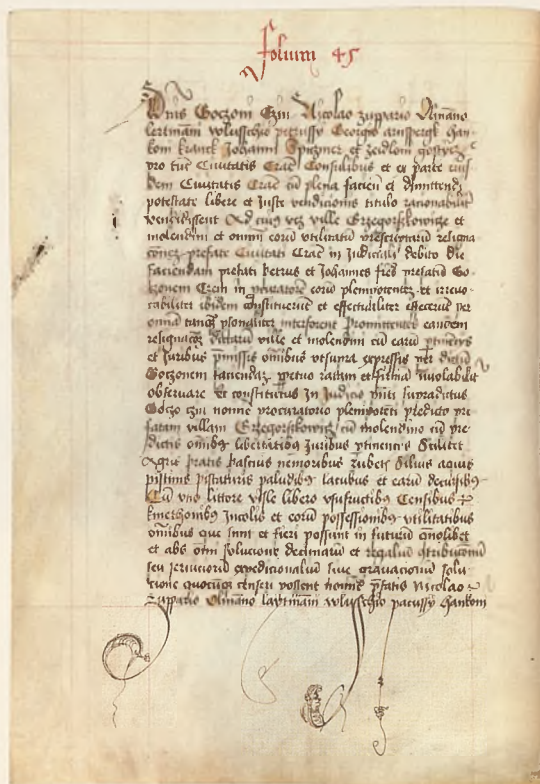 folium 45
Dnis Goczoni Czin Nicolao zuppario Olmano
lertmani volusschio petrussy Georgio arnsspergk han
koni kranck Johanni Spiczmer et zeidlom gostycz
pro tuc Civitatis Crac Consulibus et ex parte eius
dem Civitatis Crac cu plena facien et dimittend
potestate libere et Juste vendicionis titulo racionabilit
vendidissent Ad cuius ville Grzegorskowicze et
molendini et omni eoru utilitatu prescriptaru resigna
prefate Civitati Crac in Judiciali debito die
faciendam prefati petrus et Johannes fres prefatis Go
czonem Czein in pcuratore eoru plenipotente et irrevo
cabilite ibidem constituerut et effectualiter effecerut per
omia tanq psonaliter interforent Promittentes eandem
resignacoz dictaru ville et molendini cu earu ptinencys
et Juribus pmissis omibus utsupra expressis per dictu
Goczonem faciendaz ppetuo ratam et firma Inviolabilit
observare Et constitutus In Judicio pnti supradictus
Goczo qui nomine procuratorio plenipoteti predicto pre
fatam villam Grzegorskowicz cu molendino cu pre
dictis omibq libertatibq Juribus ptinencys scilicet
Agris pratis pascuis nemoribus Rubetis silvis aquis
piscinis piscaturis paludibq lacubus et earu decursibq
Cu uno littore visle libero usufructibq Censibus
kmethonibq Incolis et eorum possessionibq utilitatibus
omibus que sunt et fieri possunt in futuru quolibet
et abs omi solucione decimaru et regaliu contribucionu
seu serviciorum expedicionaliu sive gravacionu solu
cione quocuq censeri possent nomine pfatis Nicolao
zuppario Olmano lawtmani volusschio patrussy hankoni